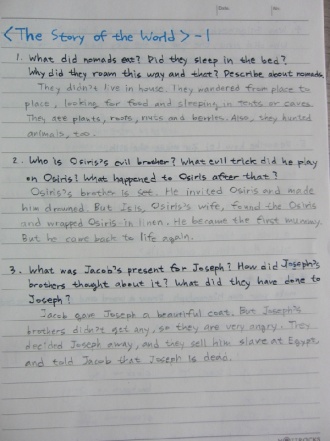 <The Story of the World> -1
1. What did nomads eat? Did they sleep in the bed?
Why did they roam this way and that? Describe about nomads
They didn't live in house. They wandered from place
to place, looking for food and sleeping in tents or caves.
They ate plants, roots, nuts and berries. Also, they hunted
animals, too.
2. Who is Osiris's evil brother? What evil trick did he play
on Osiris? What happened to Osiris after that?
Osiris's brother is Set. He invited Osiris and made
him drowned. But Isis, Osiris's wife, found the Osiris
and wrapped Osiris in linen. He became the first mummy.
But he came back to life again.
3. What was Jacob's present for Joseph? How did Joseph's
brothers thought about it? What did they have done to
Joseph?
Jacob gave Joseph a beautiful coat. But Joseph's
brothers didn't get any, so they are very angry. They
decided Joseph away, and they sell him slave at Egypt
and told Jacob that Joseph is dead.